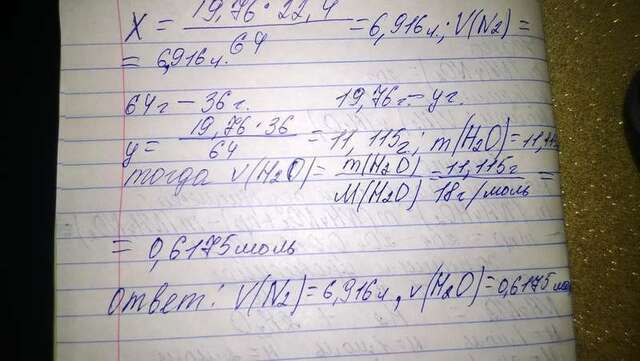 X = 19,76·22,4 / 64 = 6,916л.; V(N2) =
= 6,916л.
64г – 36г. 19,76г – yг.
y = 19,76·36 / 64 = 11,115г; m(H2O) = 11,11
тогда ν(H2O) = m(H2O) / M(H2O) = 11,115г / 18г/моль =
= 0,6175моль
ответ: V(N2) = 6,916л, ν(H2O) = 0,6175мо